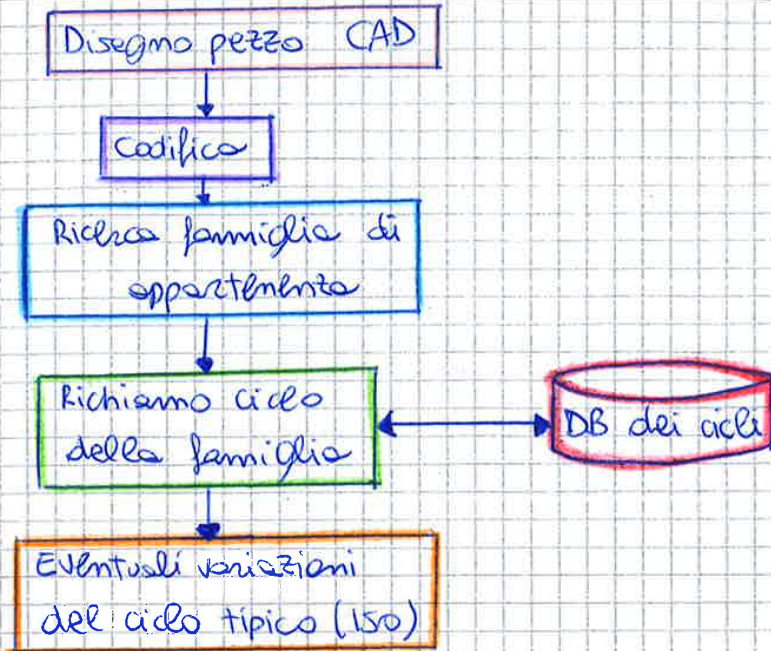 Disegno pezzo CAD
Codifica
Ricerca famiglia di
appartenenza
Richiamo ciclo
della famiglia
DB dei cicli
Eventuali variazioni
del ciclo tipico (ISO)